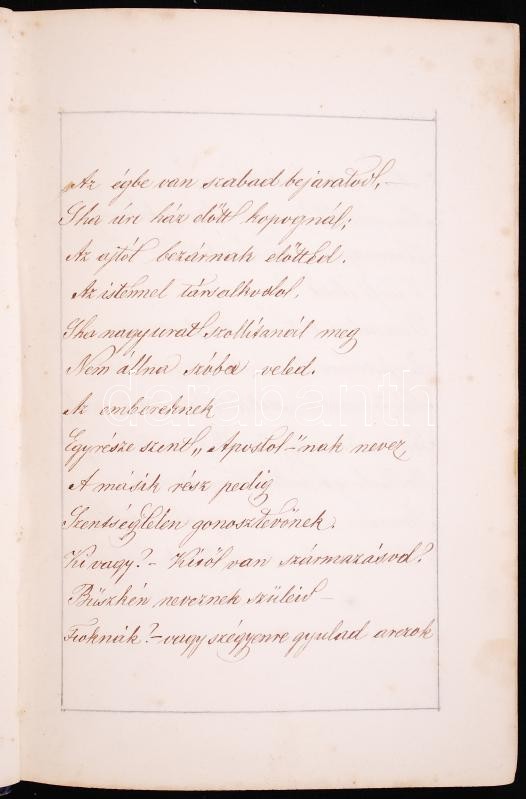 Az égbe van szabad bejaratod,—
S ha úri ház előtt kopognál;
Az ajtót bezárnak előtted.
Az istennel társalkodol,
S ha nagy urat szollítanál meg
Nem állna szóba veled.
Az embereknek
Egyrésze szent „Apostol"-nak nevez,
A másik rész pedig
Szentségtelen gonosztevőnek.
Ki vagy?- Kitől van származásod?
Büszkén neveznek szüleid—
Fioknák?-vagy szégyenre gyulad arczok
darabanth